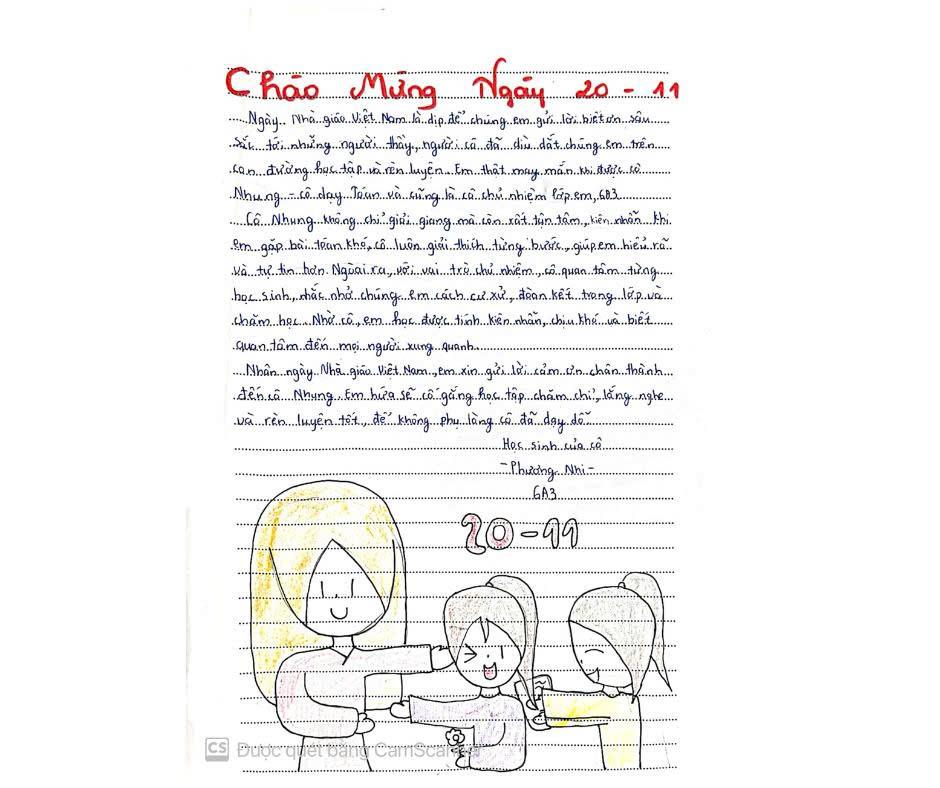 Chào Mừng Ngày 20 - 11
Ngày Nhà giáo Việt Nam là dịp để chúng em gửi lời biết ơn sâu
sắc tới những người thầy, người cô đã dìu dắt chúng em trên
con đường học tập và rèn luyện. Em thật may mắn khi được cô
Nhung - cô dạy Toán và cũng là cô chủ nhiệm lớp em, 6A3
Cô Nhung không chỉ giỏi giang mà còn rất tận tâm, kiên nhẫn khi
em gặp bài toán khó, cô luôn giải thích từng bước, giúp em hiểu rõ
và tự tin hơn. Ngoài ra, với vai trò chủ nhiệm, cô quan tâm từng
học sinh, nhắc nhở chúng em cách cư xử, đoàn kết trong lớp và
chăm học. Nhờ cô, em học được tính kiên nhẫn, chịu khó và biết
quan tâm đến mọi người xung quanh.
Nhân ngày Nhà giáo Việt Nam, em xin gửi lời cảm ơn chân thành
đến cô Nhung. Em hứa sẽ cố gắng học tập chăm chỉ, lắng nghe
và rèn luyện tốt, để không phụ lòng cô đã dạy dỗ.
Học sinh của cô
-Phương Nhi-
6A3
20-11
CS Được quét bằng CamScanner